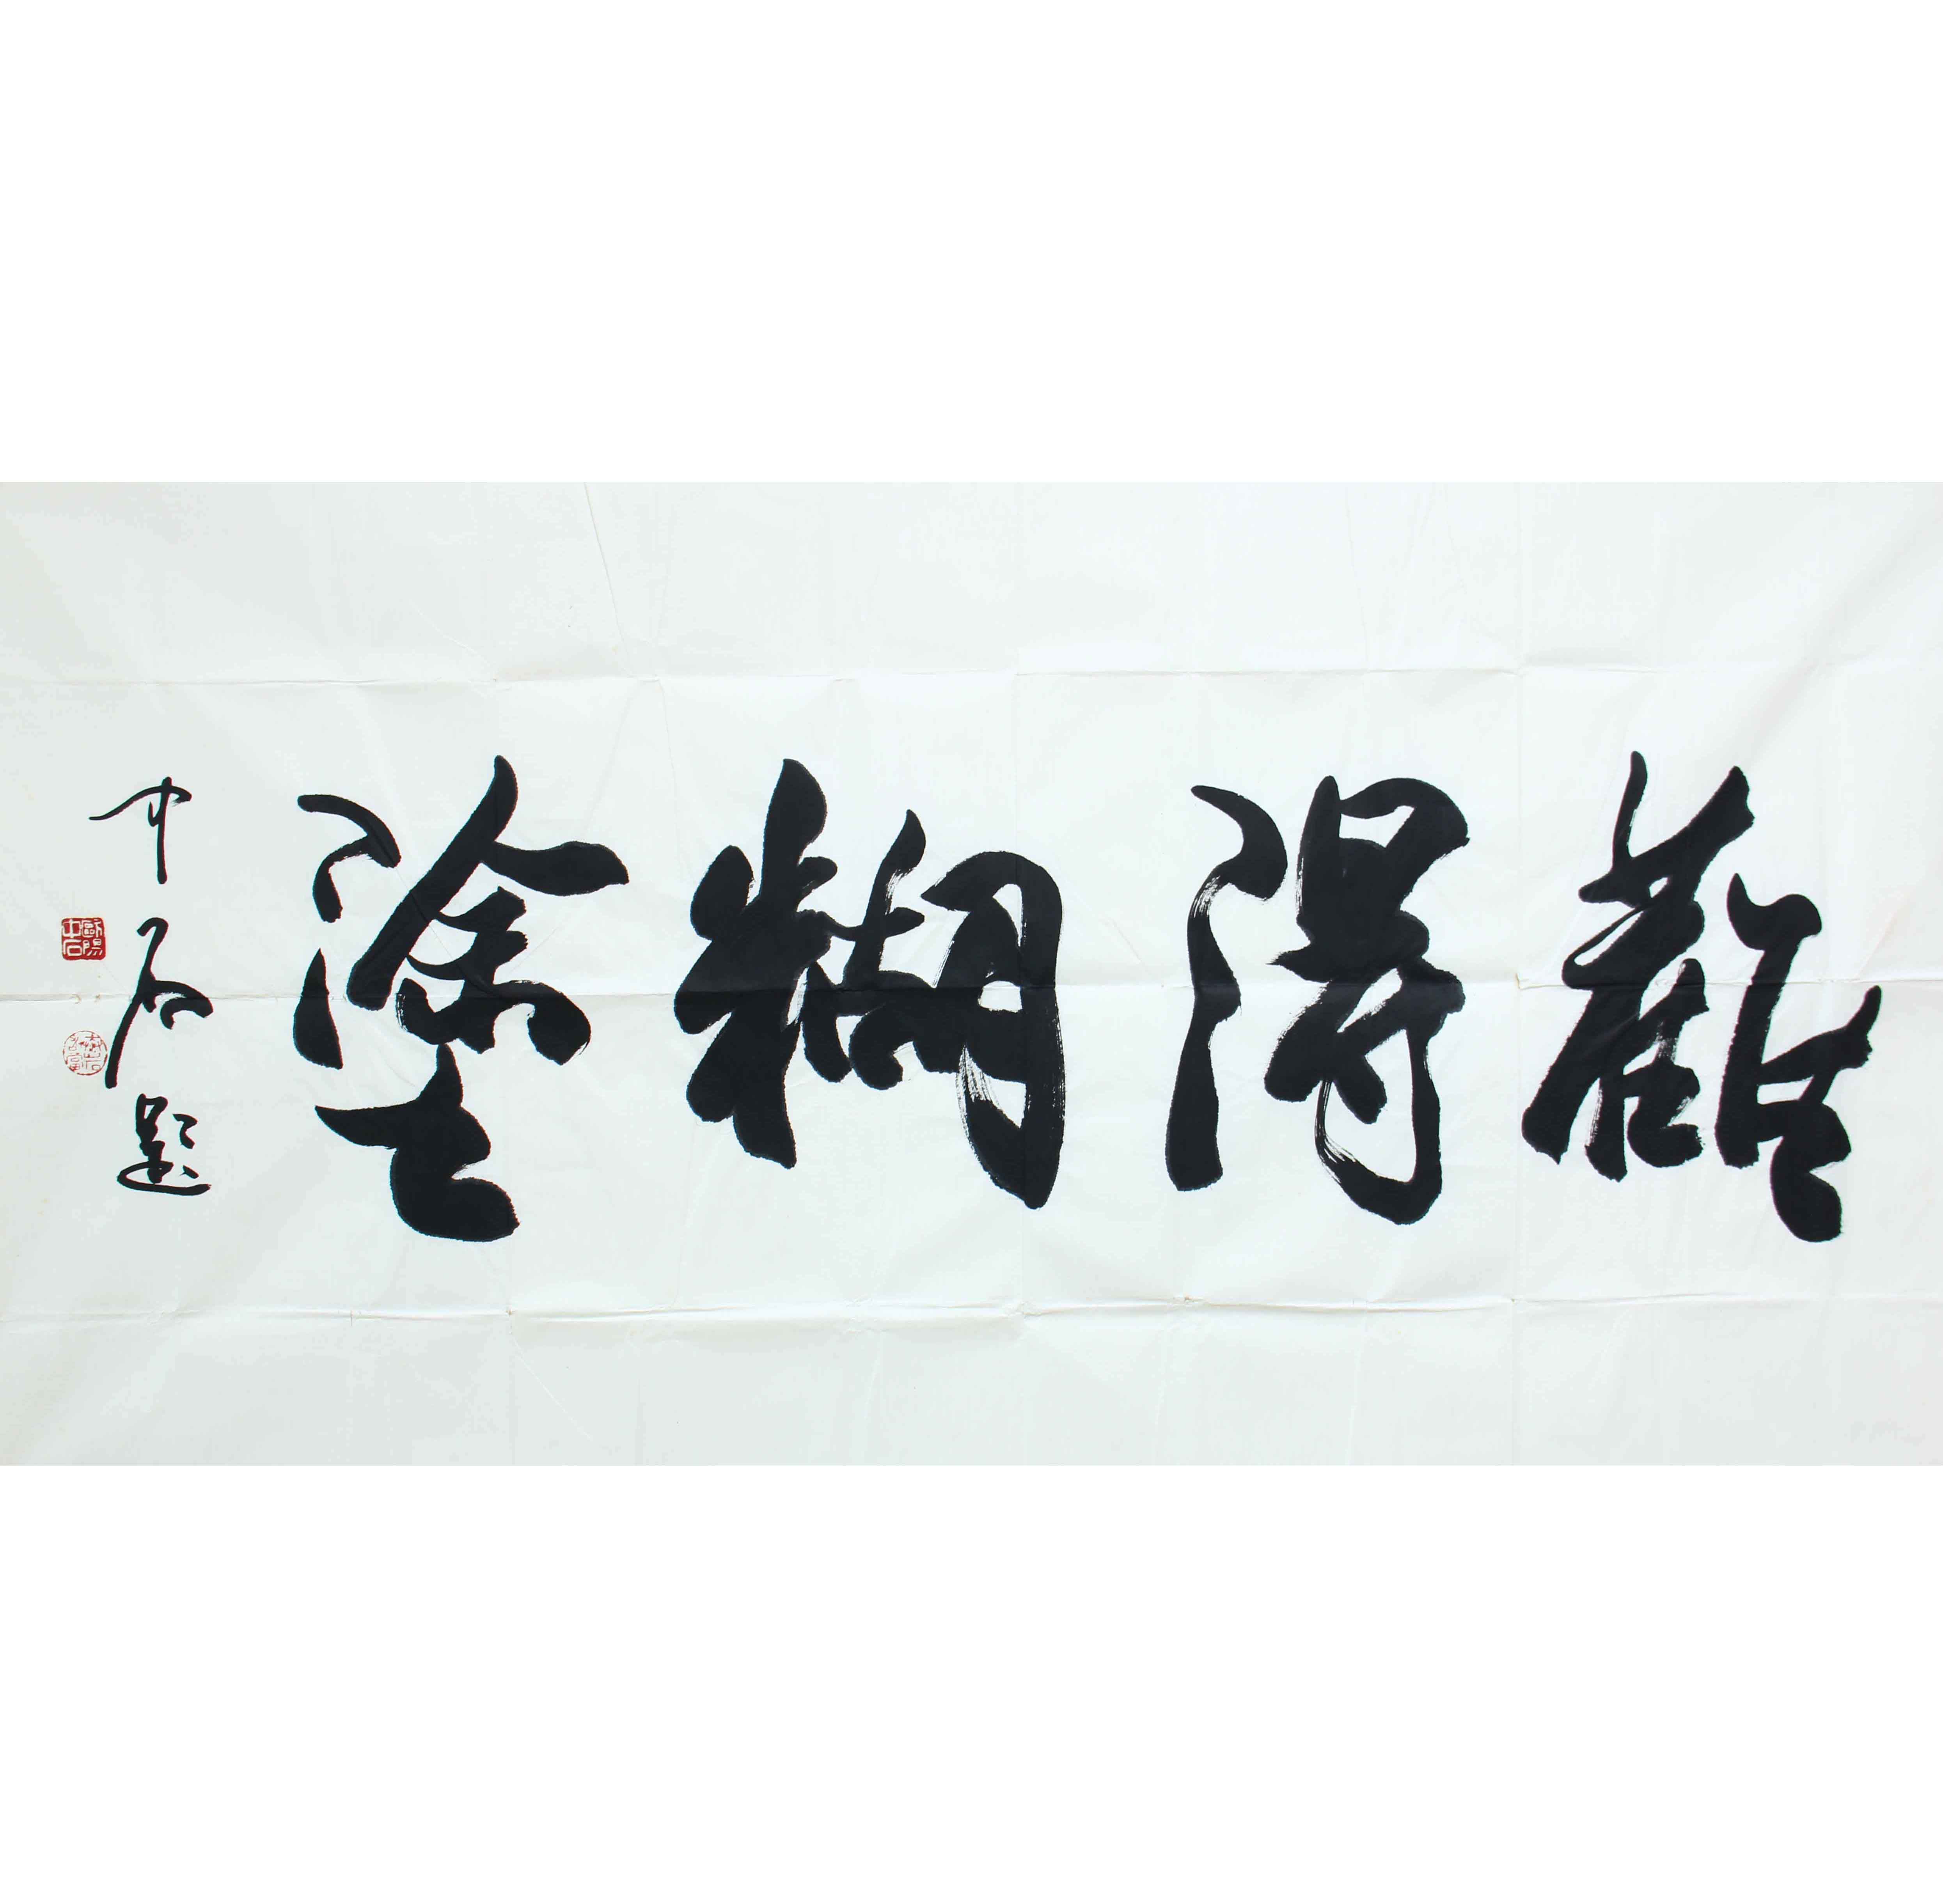 難得糊塗
中石題
歐陽中石